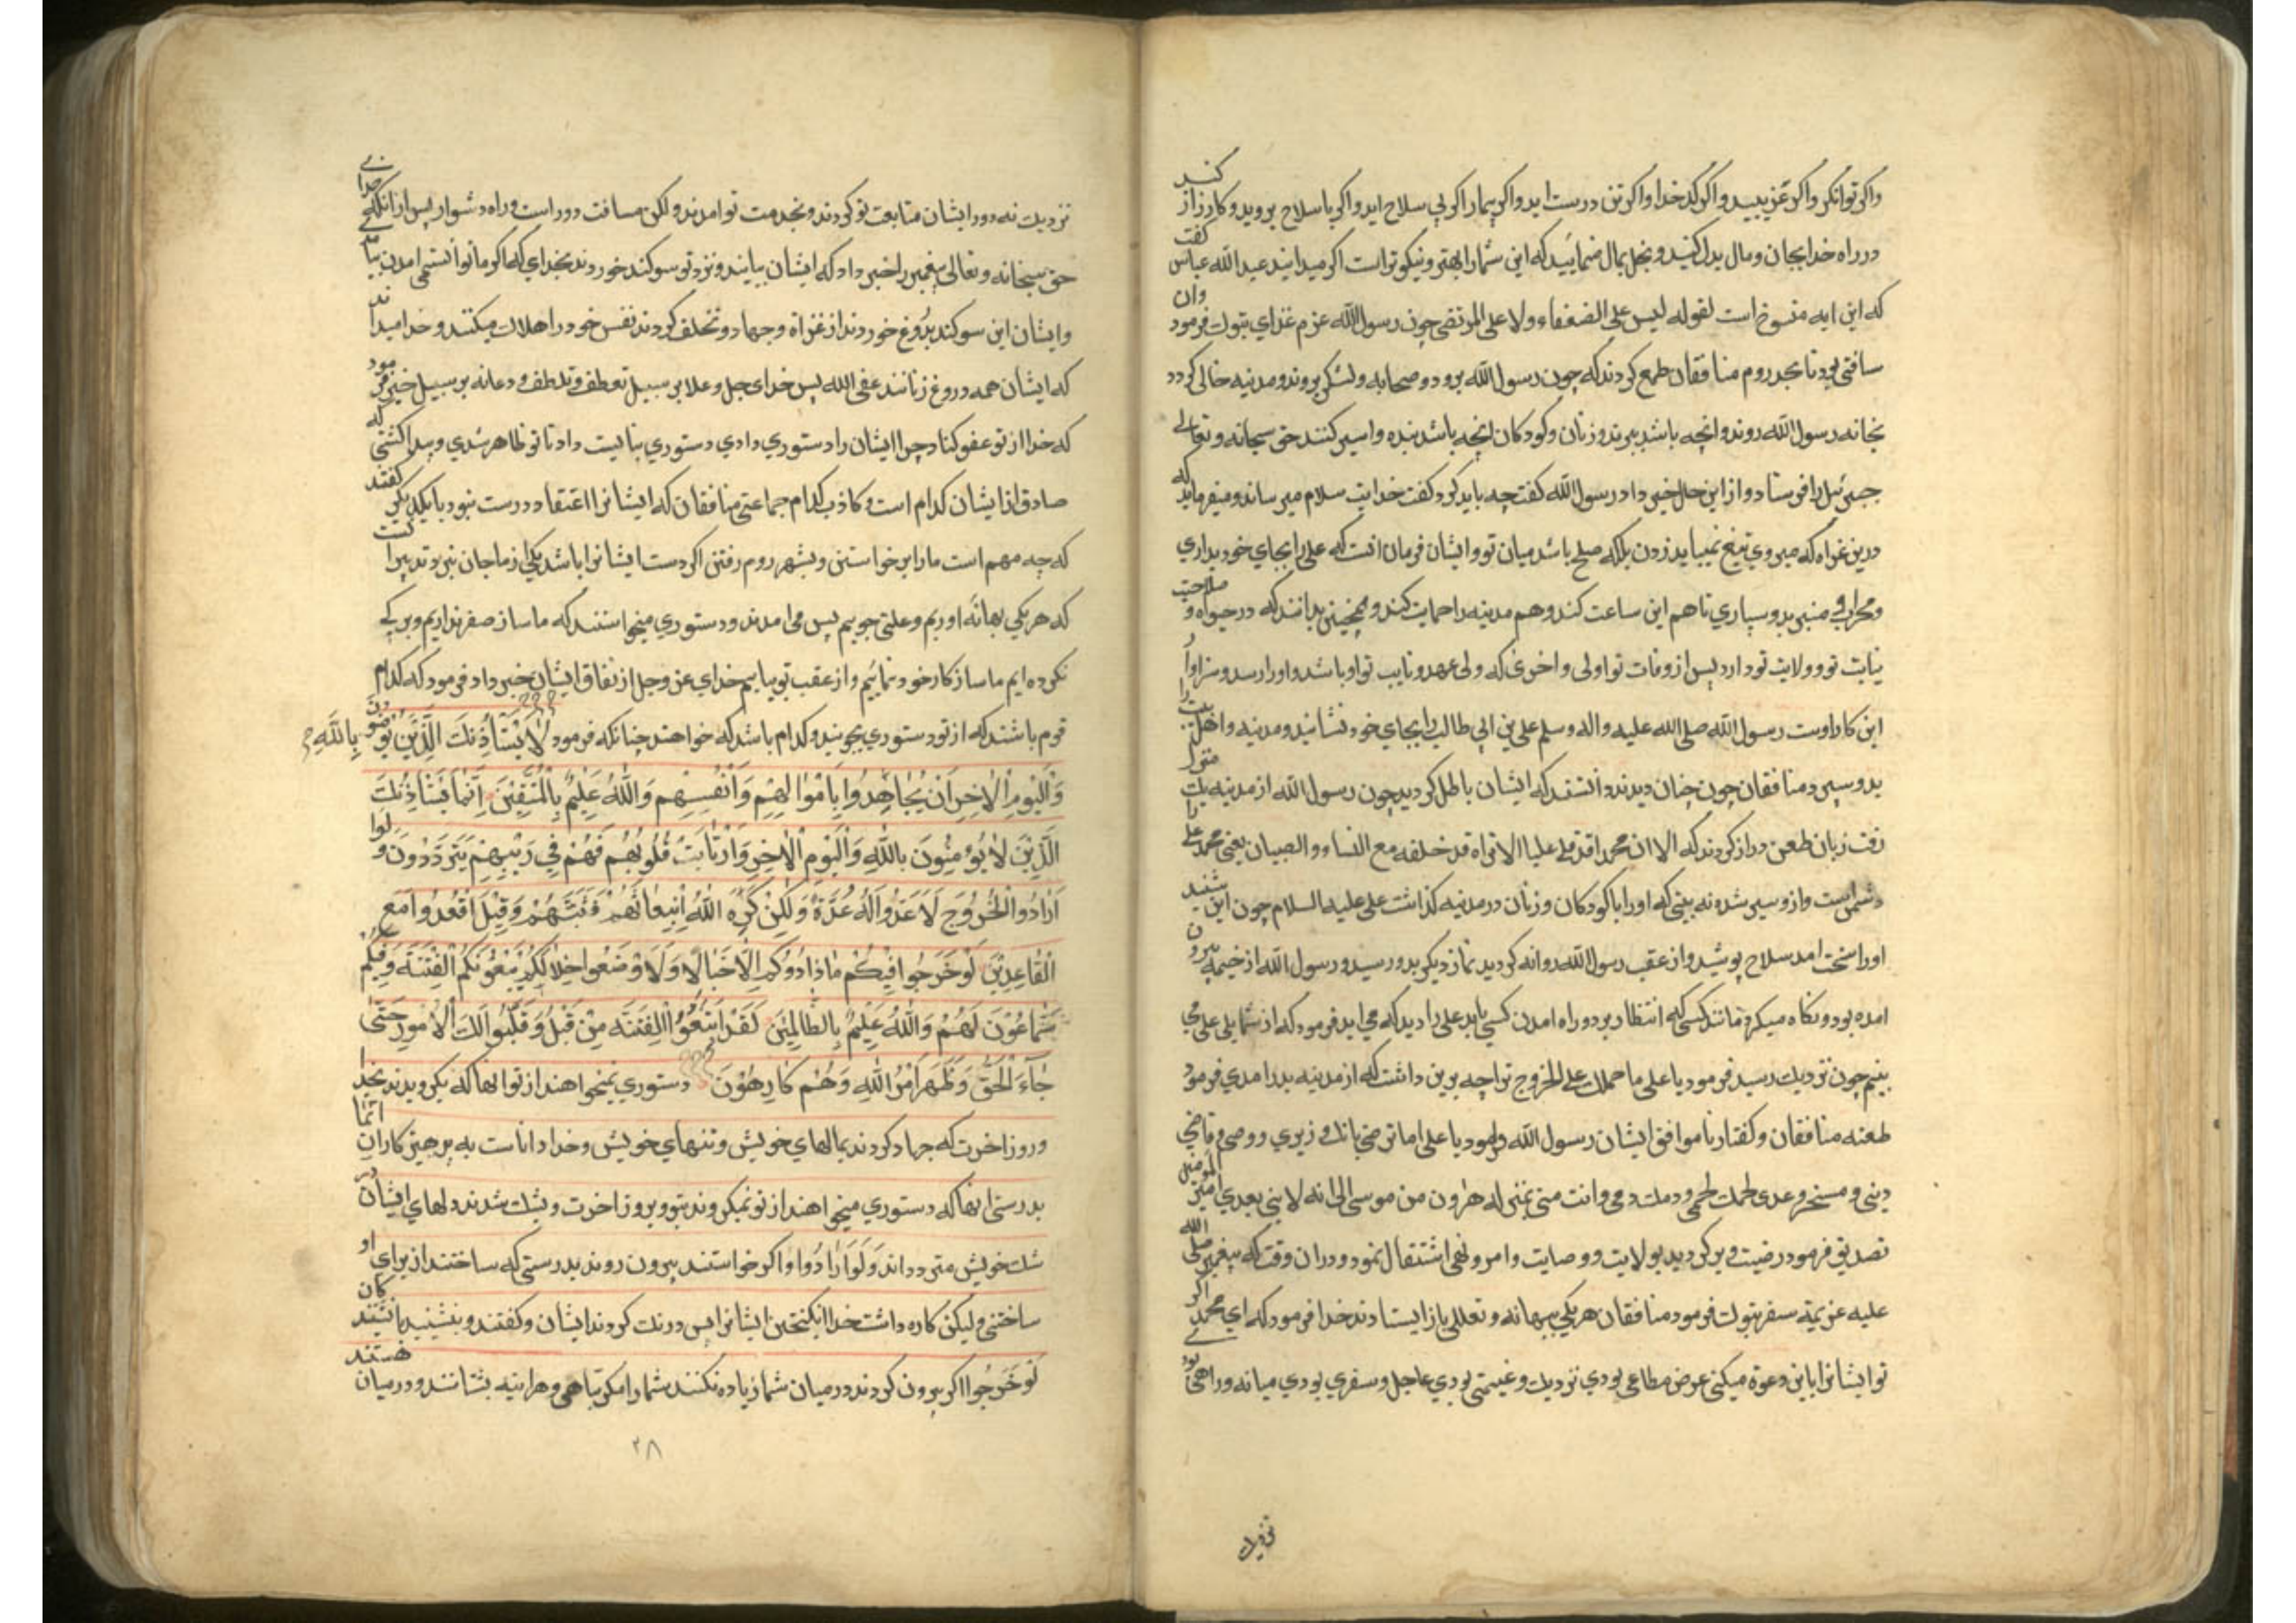 واکر توانکر واکر عزیبید واکر کدخدا واکر تن درست اید واکر بیمار اکر بی سلاح اید واکر باسلاح بروید وکارزار کنید
در راه خدا بجان ومال بدل کنید وبخل بمال منمائید که این شمارا بهتر ونیکوتر است اکر میدانید عبد الله عباس کفت
که این ایه منسوخ است لقوله لیس علی الضعفاء ولا علی المرضی چون رسول الله عزم غزای تبوک فرمود وان
سافتی بود تا بحد روم منافقان طمع کردند که چون رسول الله برود وصحابه ولشکر بروند ومدینه خالی کردد
بخانه رسول الله روند وانچه باشد ببرند وزنان وکودکان انچه باشد بنده واسیر کنند حق سبحانه وتعالی
جبرئیل را فرستاد واز این حال خبر داد رسول الله کفت چه باید کرد کفت خدایت سلام میرساند ومیفرماید که
درین غزاه که میروی تیغ نمیباید زدن بلکه صلح باشد میان تو وایشان فرمان انست که علی را بجای خود بداری
ومحراب ومنبر بدو سپاری تا هم این ساعت کند وهم مدینه را حمایت کند وهمچنین بدانند که در حیوة وصلاحیت
نیابت تو وولایت تو دارد پس از وفات تو اولی واخری که ولی عهد ونایب تو او باشد واورا رسد وسزاوار
این کار اوست رسول الله صلی الله علیه واله وسلم علی بن ابی طالب را بجای خود نشانید ومدینه واهل بیت را
بدو سپرد منافقان چون چنان دیدند دانستند که ایشان باطل کردید چون رسول الله از مدینه یک منزل
رفت زبان طعن دراز کردند که الا ان محمدا قد قلی علیا الا تراه قد خلفه مع النساء والصبیان یعنی محمد علی را
دشمن است وازو سیر شده نه بینی که اورا با کودکان وزنان در مدینه کذاشت علی علیه السلام چون این شنید
اورا سخت امد سلاح پوشید واز عقب رسول الله روانه کردید نماز دیکر بدو رسید ورسول الله از خیمه بیرون
امده بود ونکاه میکرد مانند کسی که انتظار برد وراه امدن کسی باید علی را دید که می اید فرمود که از شمایل علی می
بینم چون نزدیک رسید فرمود یا علی ما حملک علی الخروج ترا چه برین داشت که از مدینه بدر امدی فرمود
طعنه منافقان وکفتار ناموافق ایشان رسول الله فرمود یا علی اما ترضی بانک وزیری ووصی وقاضی
دینی ومنجز وعدی لحمک لحمی ودمک دمی وانت منی بمنزله هرون من موسی الا انه لا نبی بعدی امیر المومنین
تصدیق فرمود رضیت وبر کردید بولایت ووصایت وامر ونهی اشتغال نمود ودران وقت که پیغمبر صلی الله
علیه عزیمة سفر تبوک فرمود منافقان هر یکی ببهانه وتعللی باز ایستادند خدا فرمود که ای محمد اکر
تو ایشانرا باین دعوة میکنی عرض مطاعی بودی نزدیک وغنیمتی بودی عاجل وسفری بودی میانه وراهی بودی
نزدیک
نزدیک نه دور ایشان متابعت تو کردند وبخدمت تو امدندی ولکن مسافت دور است وراه دشوار پس از انکه خدای
حق سبحانه وتعالی پیغمبر را خبر داد که ایشان بیایند ونزد تو سوکند خوردند بخدای که اکر ما توانستمی امدن بیامدیمی
وایشان این سوکند بدروغ خوردند از غزاه وجهاد وتخلف کردند نفس خود را هلاک میکنند وخدا میداند
که ایشان همه دروغ زنانند عفی الله پس خدای جل وعلا بر سبیل تعطف وتلطف ودعا نه بر سبیل خبر فرمود
که خدا از تو عفو کناد چرا ایشان را دستوری دادی دستوری نبایست داد تا تو ظاهر شدی وپیدا کشتی که
صادق از ایشان کدام است وکاذب کدام جماعتی منافقان که ایشانرا اعتقاد درست نبود با یکدیکر کفتند
که چه مهم است مارا بر خواستن وبشهر روم رفتن اکر دست ایشانرا باشد یکی از ما جان نبرد تدبیر انست
که هر یکی بهانه اوریم وعلتی جوییم پس می امدند ودستوری میخواستند که ما ساز سفر نداریم وبر کی
نکرده ایم ما ساز کار خود نمائیم واز عقب تو بیاییم خدای عز وجل از نفاق ایشان خبر داد فرمود که کدام
قوم باشند که از تو دستوری بجویند وکدام باشد که خواهند چنانکه فرمود لا یستأذنک الذین یؤمنون بالله
والیوم الاخر ان یجاهدوا باموالهم وانفسهم والله علیم بالمتقین انما یستأذنک
الذین لا یؤمنون بالله والیوم الاخر وارتابت قلوبهم فهم فی ریبهم یترددون ولو
ارادوا الخروج لاعدوا له عدة ولکن کره الله انبعاثهم فثبطهم وقیل اقعدوا مع
القاعدین لو خرجوا فیکم ما زادوکم الا خبالا ولاوضعوا خلالکم یبغونکم الفتنة وفیکم
سماعون لهم والله علیم بالظالمین لقد ابتغوا الفتنة من قبل وقلبوا لک الامور حتی
جاء الحق وظهر امر الله وهم کارهون دستوری نمیخواهند از تو انها که بکرویدند بخدا
وروز اخرت که جهاد کردند بمالهای خویش وتنهای خویش وخدا داناست به پرهیز کاران انما
بدرستی انها که دستوری میخواهند از تو نمیکروند بتو وبروز اخرت وبشک شدند دلهای ایشان در
شک خویش مترددانند ولو ارادوا واکر خواستند بیرون روند بدرستی که ساختند از برای او
ساختنی ولیکن کاره داشت خدا انکیختن ایشانرا پس درنک کردند ایشان وکفتند وبنشینید با نشینندکان
لو خرجوا اکر بیرون کردند در میان شما زیاده نکنند شمارا مکر تباهی وهراینه بشتابند ودر میان هستند
۲۸